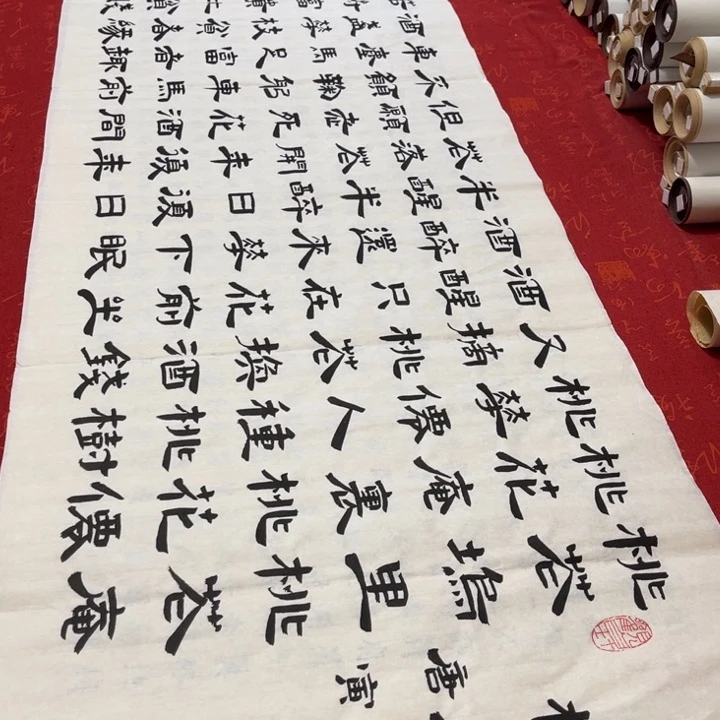 唐寅
桃花塢里桃花庵
桃花庵裏桃花僊
桃花僊人種桃樹
又摘桃花換酒錢
酒醒只在花前坐
酒醉還來花下眠
半醒半醉日須日
花落花開年須年
但願老死花酒間
不願鞠躬車馬前
車塵馬足富者趣
酒盞花枝貧者緣